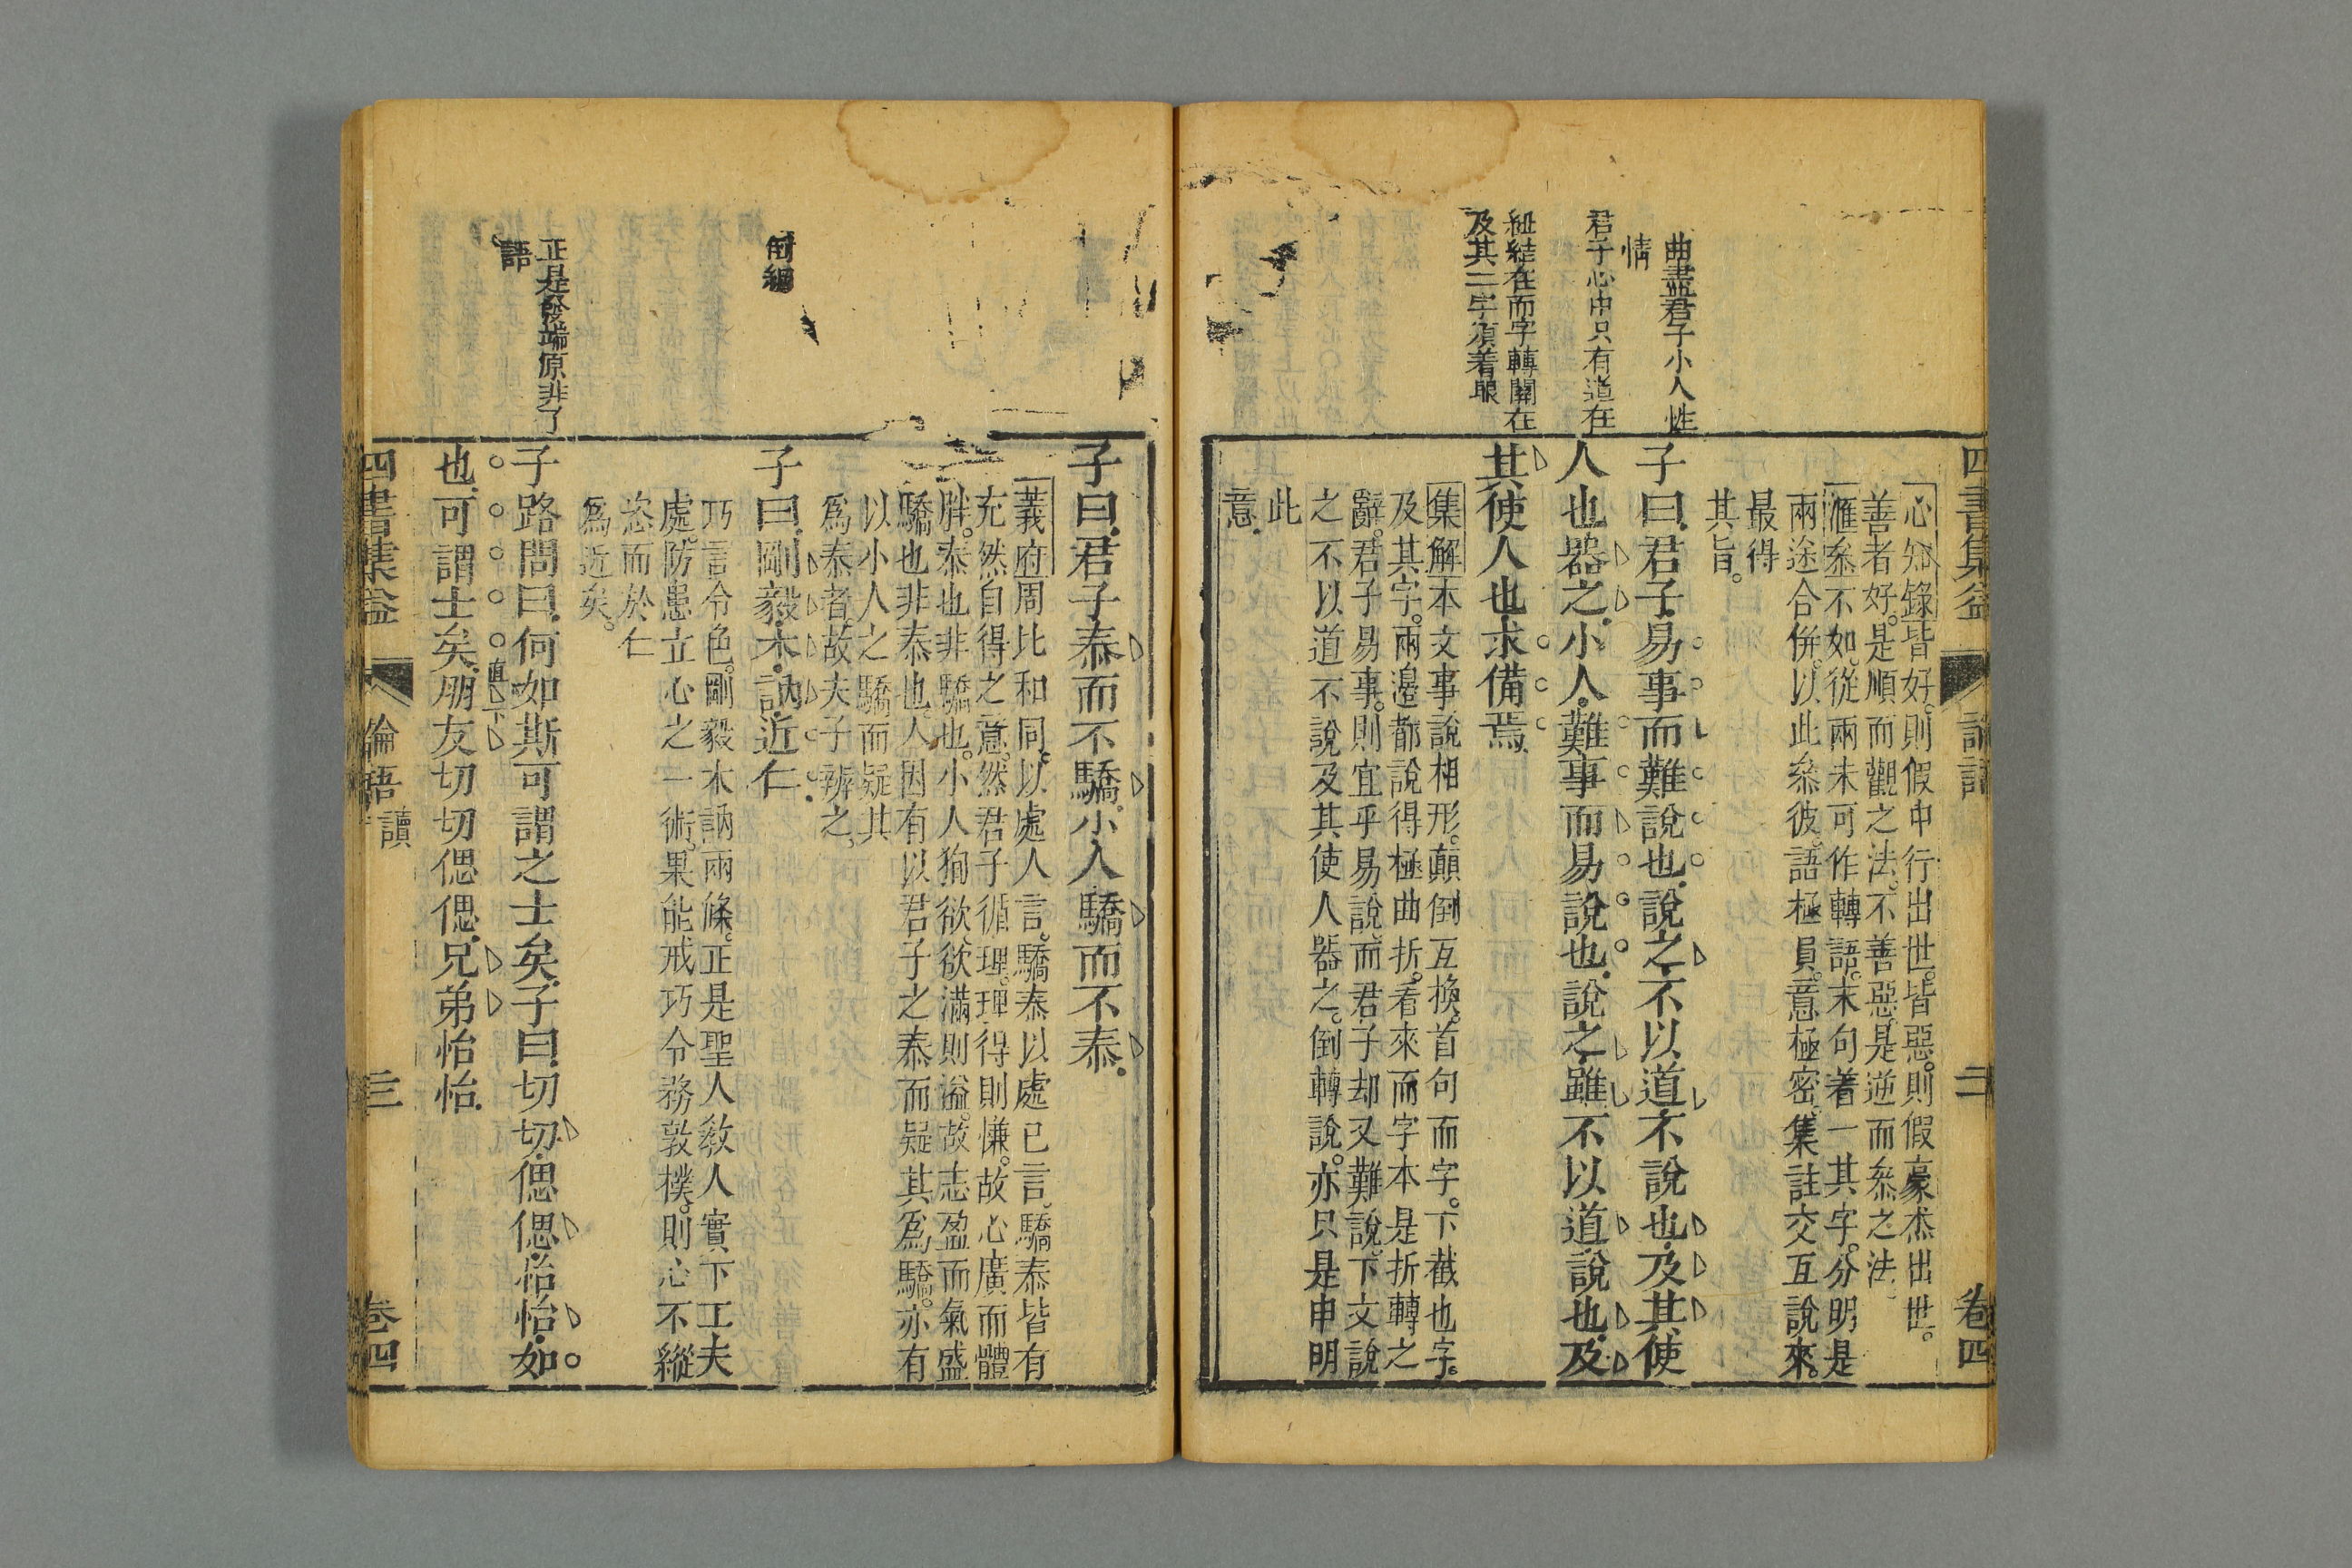 曲盡君子小人性
情
君子心中只有道在
紐結在而字轉關在
及其二字須着眼
心知錄皆好。則假中行出世。皆惡。則假豪杰出世。
善者好。是順而觀之法。不善惡。是逆而叅之法。
匯叅不如。從兩未可作轉語。末句着一其字。分明是
兩途合併。以此叅彼。語極員。意極密。集註交互說來。
最得
其旨。
子曰君子易事而難說也說之不以道不說也及其使
人也器之小人難事而易說也說之雖不以道說也及
其使人也求備焉
集解本文事說相形。顛倒互換。首句而字。下截也字。
及其字。兩邊都說得極曲折。看來而字本是折轉之
辭。君子易事。則宜乎易說。而君子却又難說。下文說
之不以道不說及其使人器之。倒轉說。亦只是申明
此
意
四書集益
二
卷四
子曰君子泰而不驕小人驕而不泰
義府周比和同。以處人言。驕泰以處已言。驕泰皆有
充然自得之意。然君子循理。理得則慊。故心廣而體
胖。泰也非驕也。小人狥欲。欲滿則溢。故志盈而氣盛
驕也非泰也。人因有以君子之泰而疑其爲驕。亦有
以小人之驕而疑其
爲泰者。故夫子辨之。
子曰剛毅木訥近仁
巧言令色。剛毅木訥兩條。正是聖人敎人實下工夫
處。防患立心之一術。果能戒巧令務敦樸。則心不縱
恣而於仁
爲近矣。
正是發端原非了
語
子路問曰何如斯可謂之士矣子曰切切偲偲怡怡如
也可謂士矣朋友切切偲偲兄弟怡怡
直下
四書集益
論語
讀
三
卷四